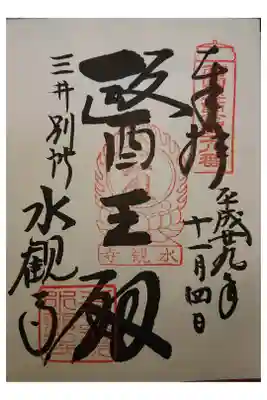 奉拝
平成廿九年
十一月四日
醫王殿
水観寺
三井別所
水観寺